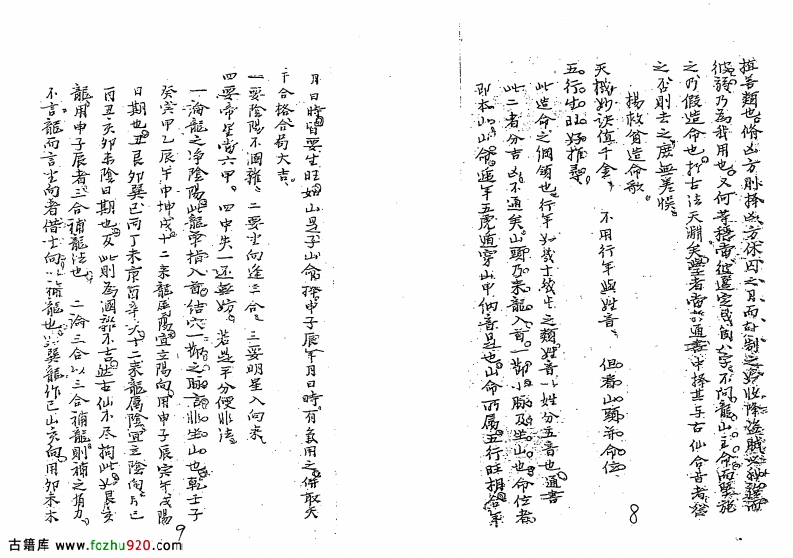 擇吉類也脩凶方則擇凶方休囚之月而剋制之
彼弱乃為我用也又何
之乃假造命也於古法天淵矣學者當於通書中擇其與古仙合吉者從
之否則去之庶無差悞
楊救貧造命歌
天機妙訣值千金 不用行年與姓音 但看山頭并命位
五行生旺好推尋
此造命之綱領也行年如戰士戰生之類姓音以姓分五音也通書
此二者分吉凶不通矣山頭乃來龍入首一節小脈及坐山也命位者
即本山山命遁年五虎遁穿山甲納音是也山命所屬五行旺相合年
8
月日時皆要生旺如山是子山命擇申子辰年月日時有氣用之併取天
干合格合局大吉
一要陰陽不溷雜 二要坐向逢三合 三要明星入向來
四要帝星當六甲 四中失一還無妨 若是平分便非法
一論龍之淨陰陽此龍單指入首結穴一節之脈言非坐山也乾壬子
癸寅甲乙辰午申坤戌十二來龍屬陽宜立陽向用申子辰寅午戌陽
日期也丑艮卯巽巳丙丁未庚酉辛亥十二來龍屬陰宜立陰向用巳
酉丑亥卯未陰日期也反此則為溷雜不吉然古仙不盡拘此如艮亥
龍用申子辰者三合補龍法也 二論三合以三合補龍則補之有力
不言龍而言坐向者借士向以補龍也如巽龍作巳山亥向用卯未木
9
古籍库 www.fozhu920.com